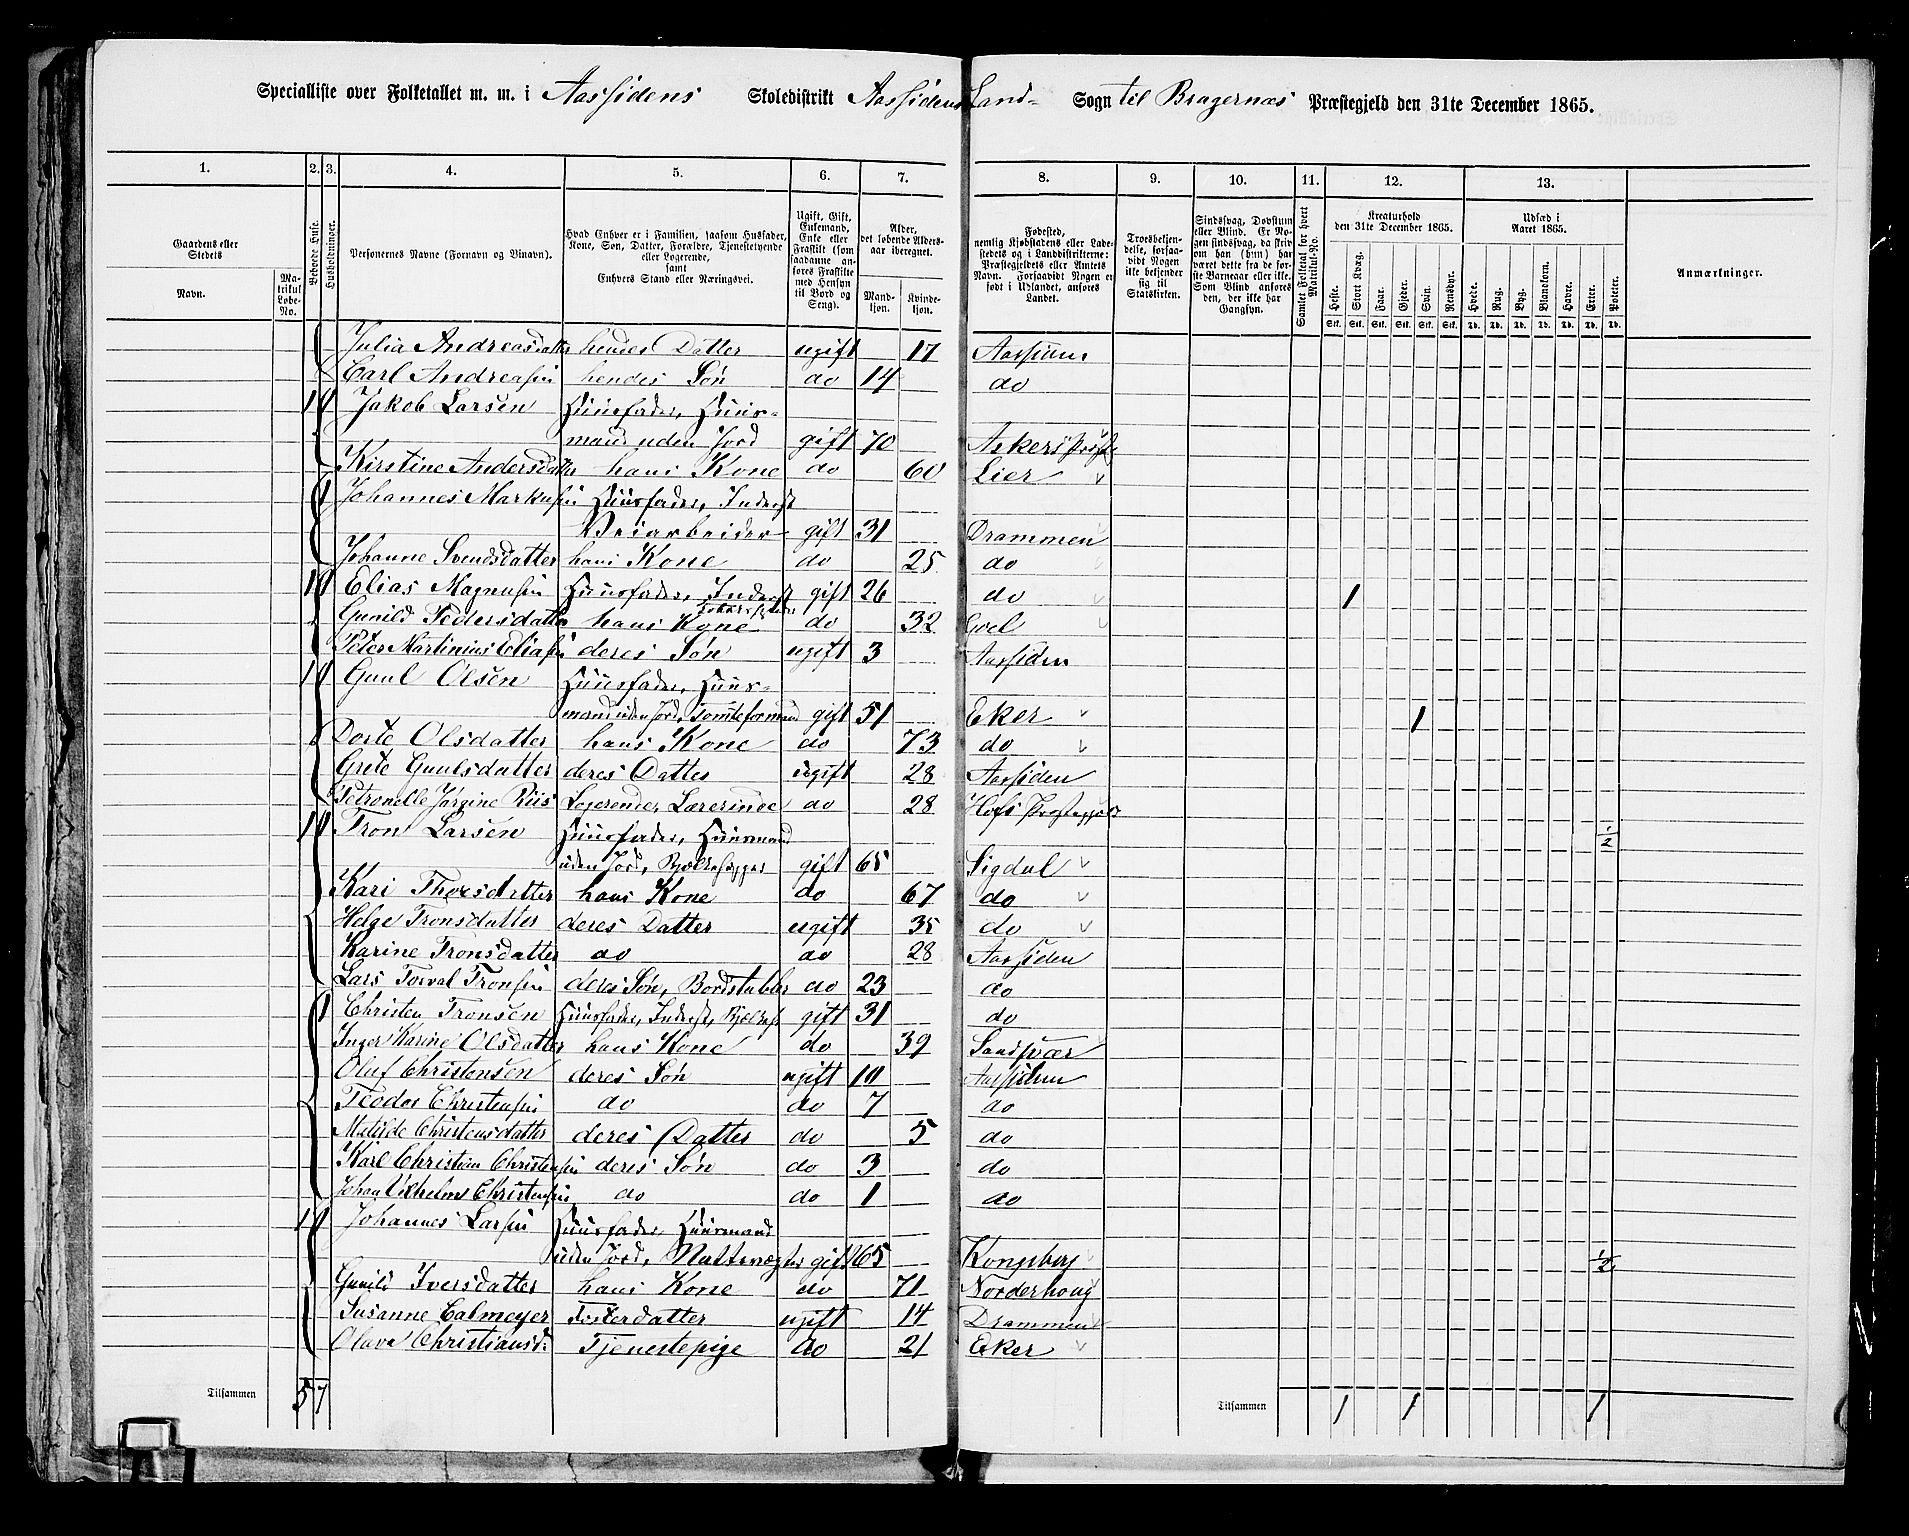 Specialliste over Folketallet m. m. i Aassidens Skoledistrikt Aassidens Land- Sogn til Bragernæs Præstegjeld den 31te December 1865.
1. 2. 3. 4. 5. 6. 7. 8. 9. 10. 11. 12. 13.
Gaardens eller Stedets Navn. Matrikul Løbe-No.
Beboede Huse.
Husholdninger.
Personernes Navne (Fornavn og Binavn).
Hvad Enhver er i Familien, saasom Husfader, Kone, Søn, Datter, Forældre, Tjenestetyende eller Logerende, samt Enhvers Stand eller Næringsvei.
Ugift, Gift, Enkemand, Enke eller Fraskilt (som saadanne anføres Fraskilte med Hensyn til Bord og Seng).
Alder, det løbende Aldersaar iberegnet. Mandkjøn. Kvindekjøn.
Fødested, nemlig Kjøbstadens eller Ladestedets og i Landdistrikterne: Præstegjeldets eller Amtets Navn. Forsaavidt Nogen er født i Udlandet, anføres Landet.
Troesbekjendelse, forsaavidt Nogen ikke bekjender sig til Statskirken.
Sindssvag, Døvstum eller Blind. Er Nogen sindssvag, da skrives om han (hun) har været dette fra de første Barneaar eller ikke. Som Blind anføres den, der ikke har Gangsyn.
Samlet Folketal for hvert Matrikul-No.
Kreaturhold den 31te December 1865. Heste. Stort Kvæg. Faar. Gjeder. Svin. Rensdyr.
Udsæd i Aaret 1865. Hvede. Rug. Byg. Blandkorn. Havre. Erter. Poteter.
Anmærkninger.
Julia Andreasdatter hendes Datter ugift 17 Aassiden
Carl Andreasen hendes Søn do 14 do
1 1 Jakob Larsen Huusfader, Huus-
mand uden Jord gift 70 Askers Præstgj
Kirstine Andersdatter hans Kone do 60 Lier
1 Johannes Markusen Huusfader, Inderst
Veiarbeider gift 31 Drammen
Johanne Svendsdatter hans Kone do 25 do
1 1 Elias Magnusen Huusfader, Inderst gift 26 do 1
Gunild Pedersdatter hans Kone do 32 Goel
Peter Martinius Eliasen deres Søn ugift 3 Aassiden
1 1 Guul Olsen Huusfader, Huus-
mand uden Jord, Tomteformand gift 51 Eker 1
Dorte Olsdatter hans Kone do 73 do
Grete Guulsdatter deres Datter ugift 28 Aassiden
Petronelle Jørgine Riis Logerende, Lærerinde do 28 Hofs Præstegjeld
1 1 Tron Larsen Huusfader, Huusmand 1/2
uden Jord, Bjælkehugger gift 65 Sigdal
Kari Thoresdatter hans Kone do 67 do
Helge Tronsdatter deres Datter ugift 35 do
Karine Tronsdatter do do 28 Aassiden
Lars Torval Tronsen deres Søn, Bordstabler do 23 do
1 Christen Tronsen Huusfader, Inderst, gift 31 do
Inger Karine Olsdatter hans Kone do 39 Sandsvær
Oluf Christensen deres Søn ugift 10 Aassiden
Teodor Christensen do do 7 do
Matilde Christensdatter deres Datter do 5 do
Karl Christian Christensen deres Søn do 3 do
Johan Vilhelm Christensen do do 1 do
1 1 Johannes Larsen Huusfader, Huusmand
uden Jord, Nattevægter gift 65 Kongsberg 1/2
Gunild Iversdatter hans Kone do 71 Norderhoug
Susanne Calmeyer Fosterdatter ugift 14 Drammen
Olava Christiansd. Tjenestepige do 21 Eker
Tilsammen 5 7 Tilsammen 1 1 1